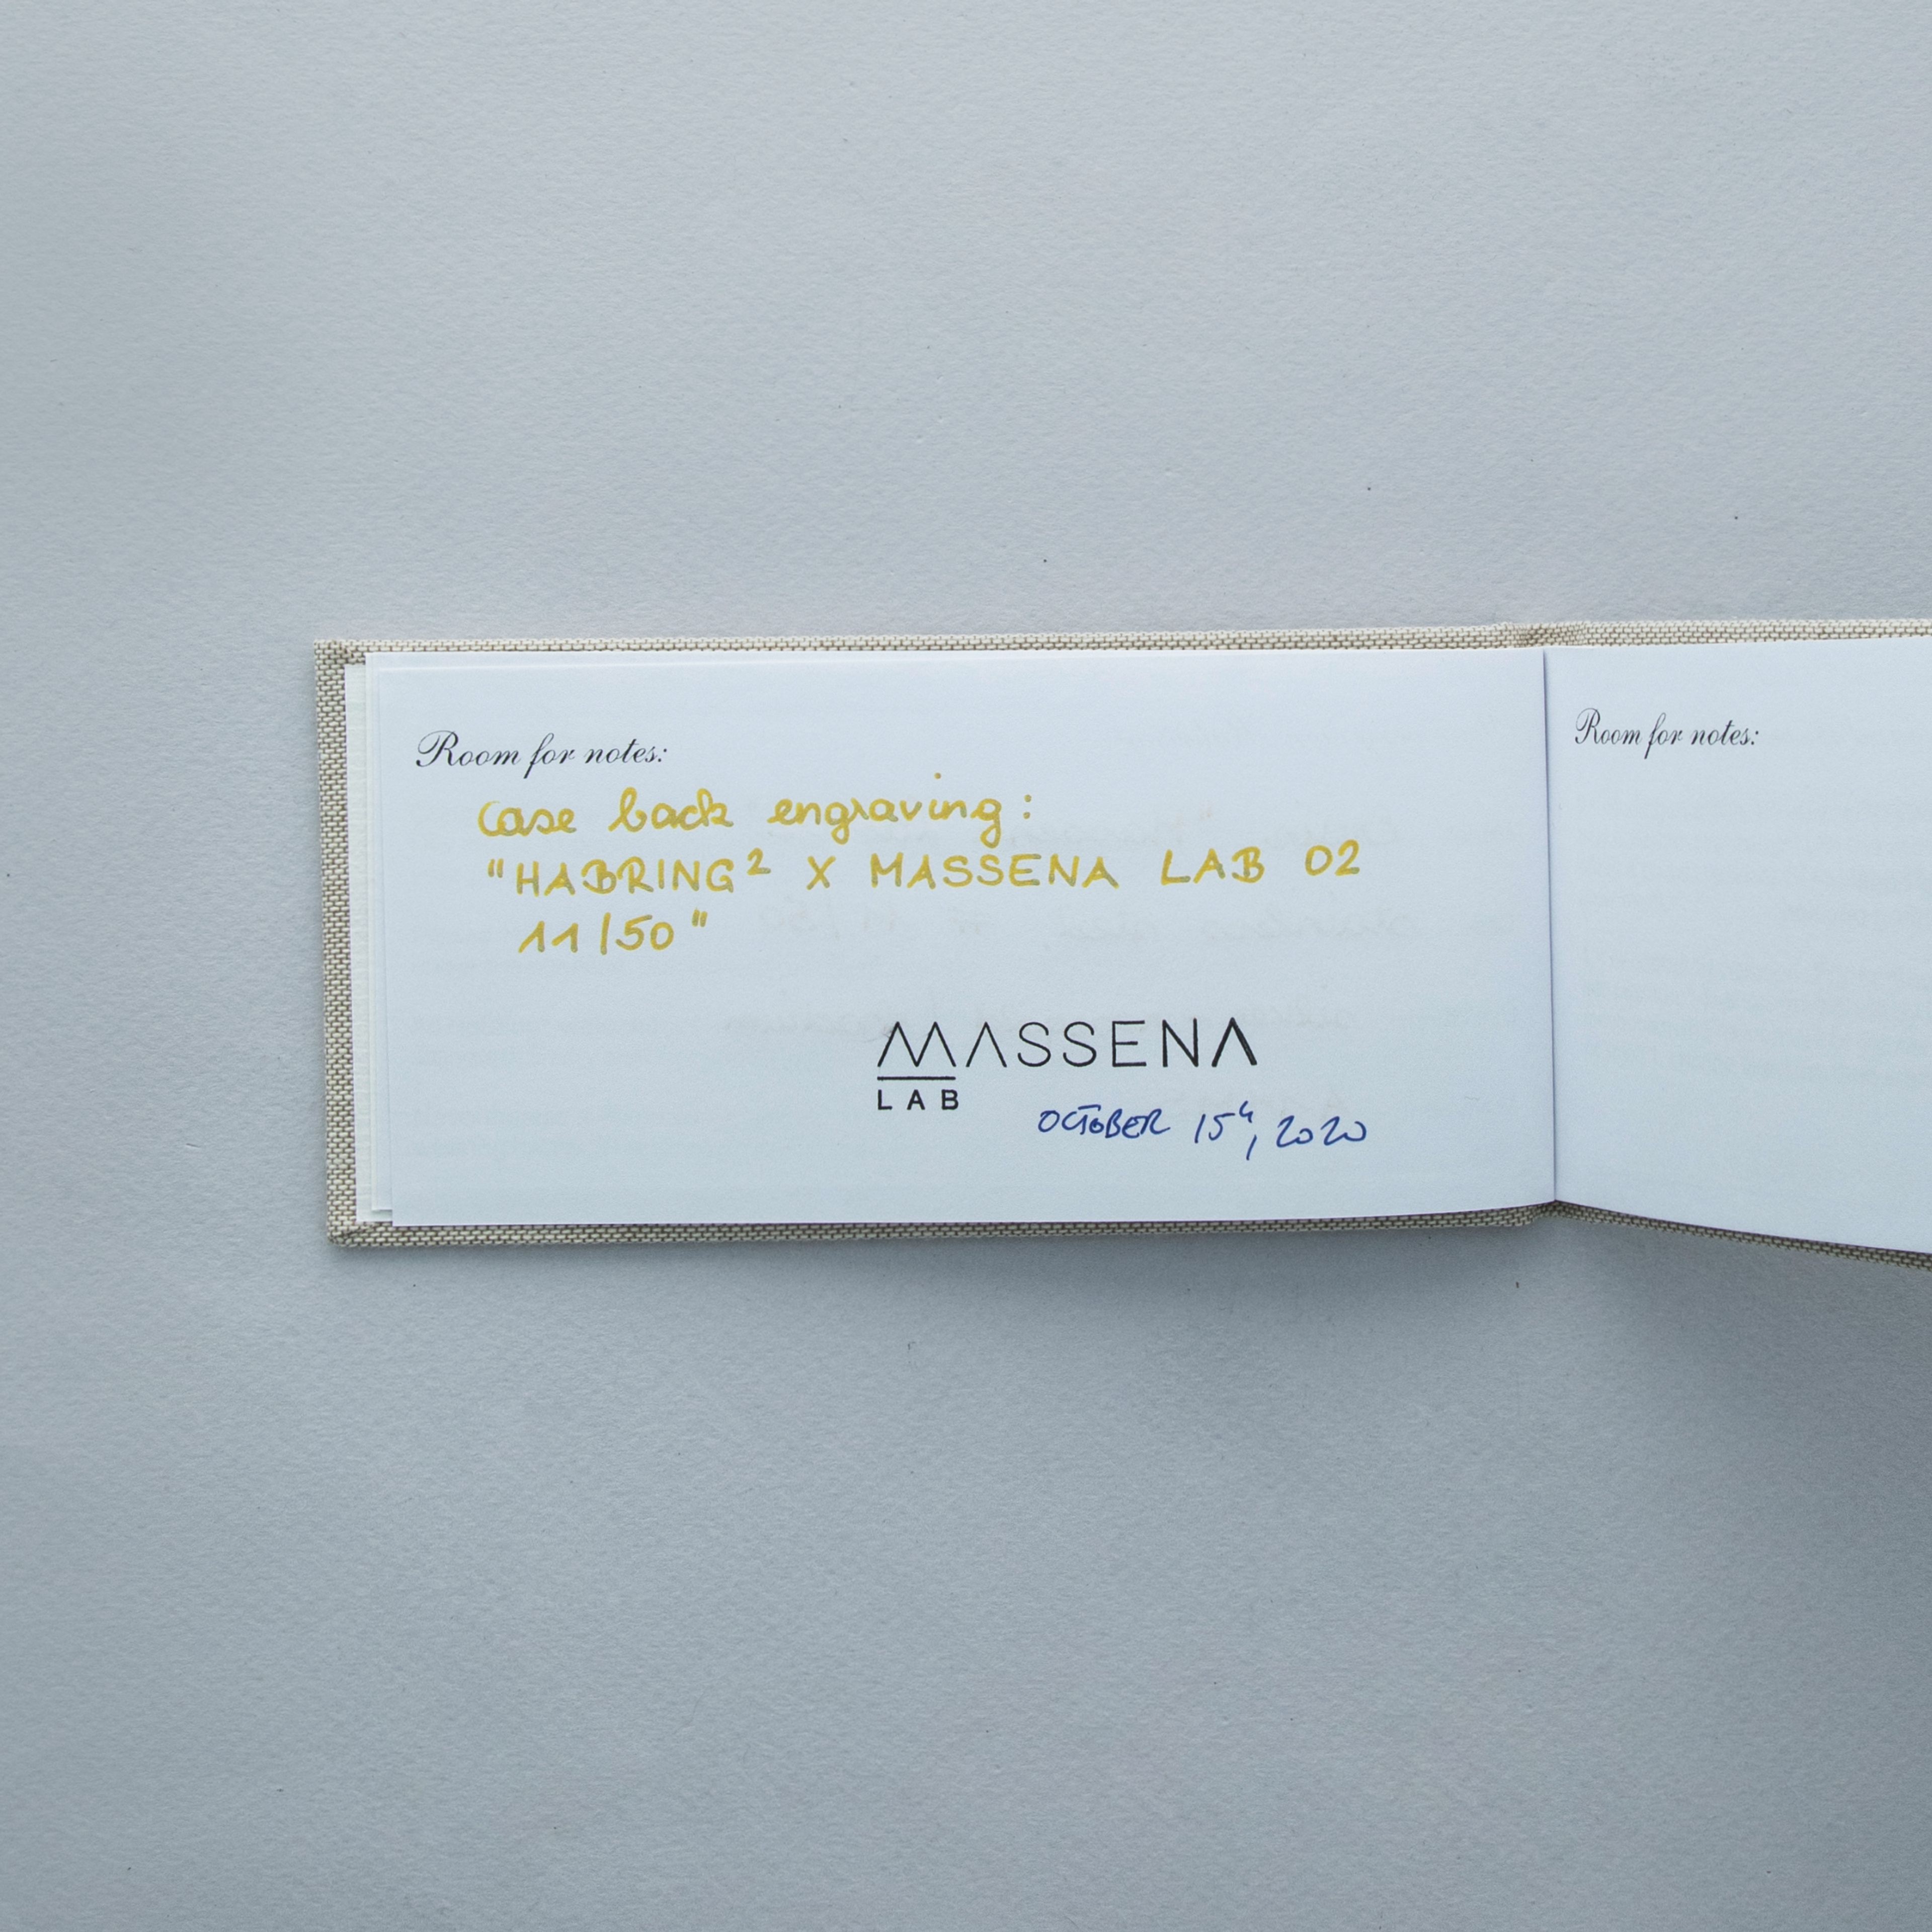 Room for notes:
case back engraving:
"HABRING² X MASSENA LAB 02
11/50"
MASSENA
LAB
OCTOBER 15th, 2020
Room for notes: